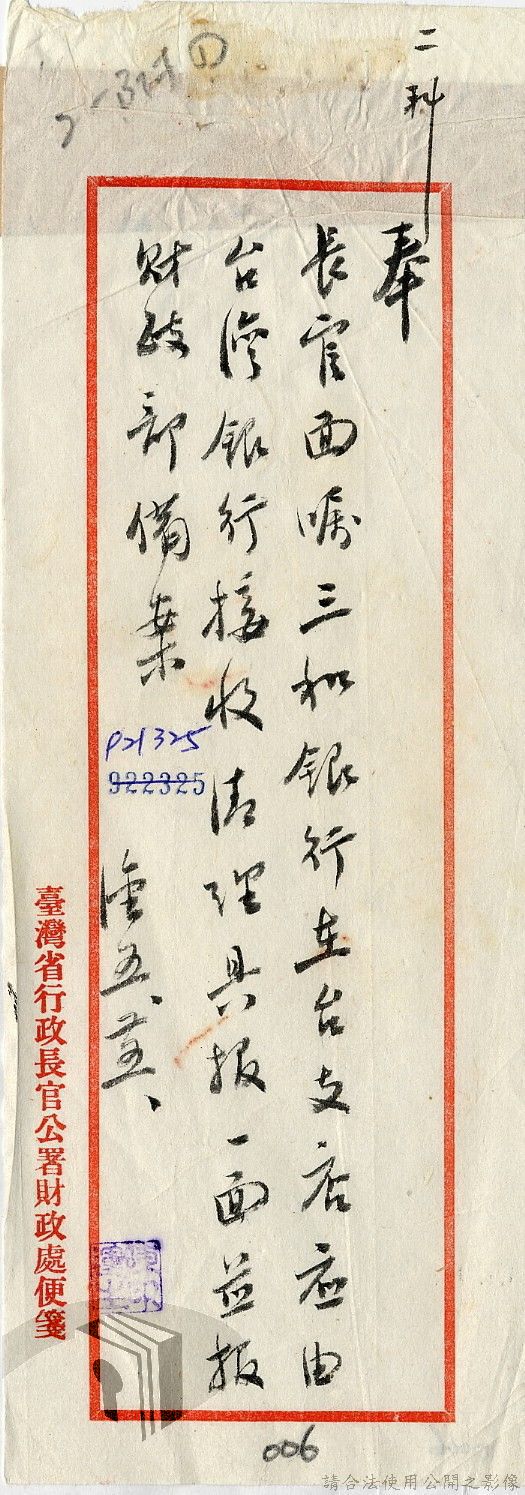 二科
奉
長官面嘱三和銀行在台支店应由
台湾銀行接收清理具报一面並报
財政部備案
P21325
922325
五、
臺灣省行政長官公署財政處便箋
006
請合法使用公開之影像